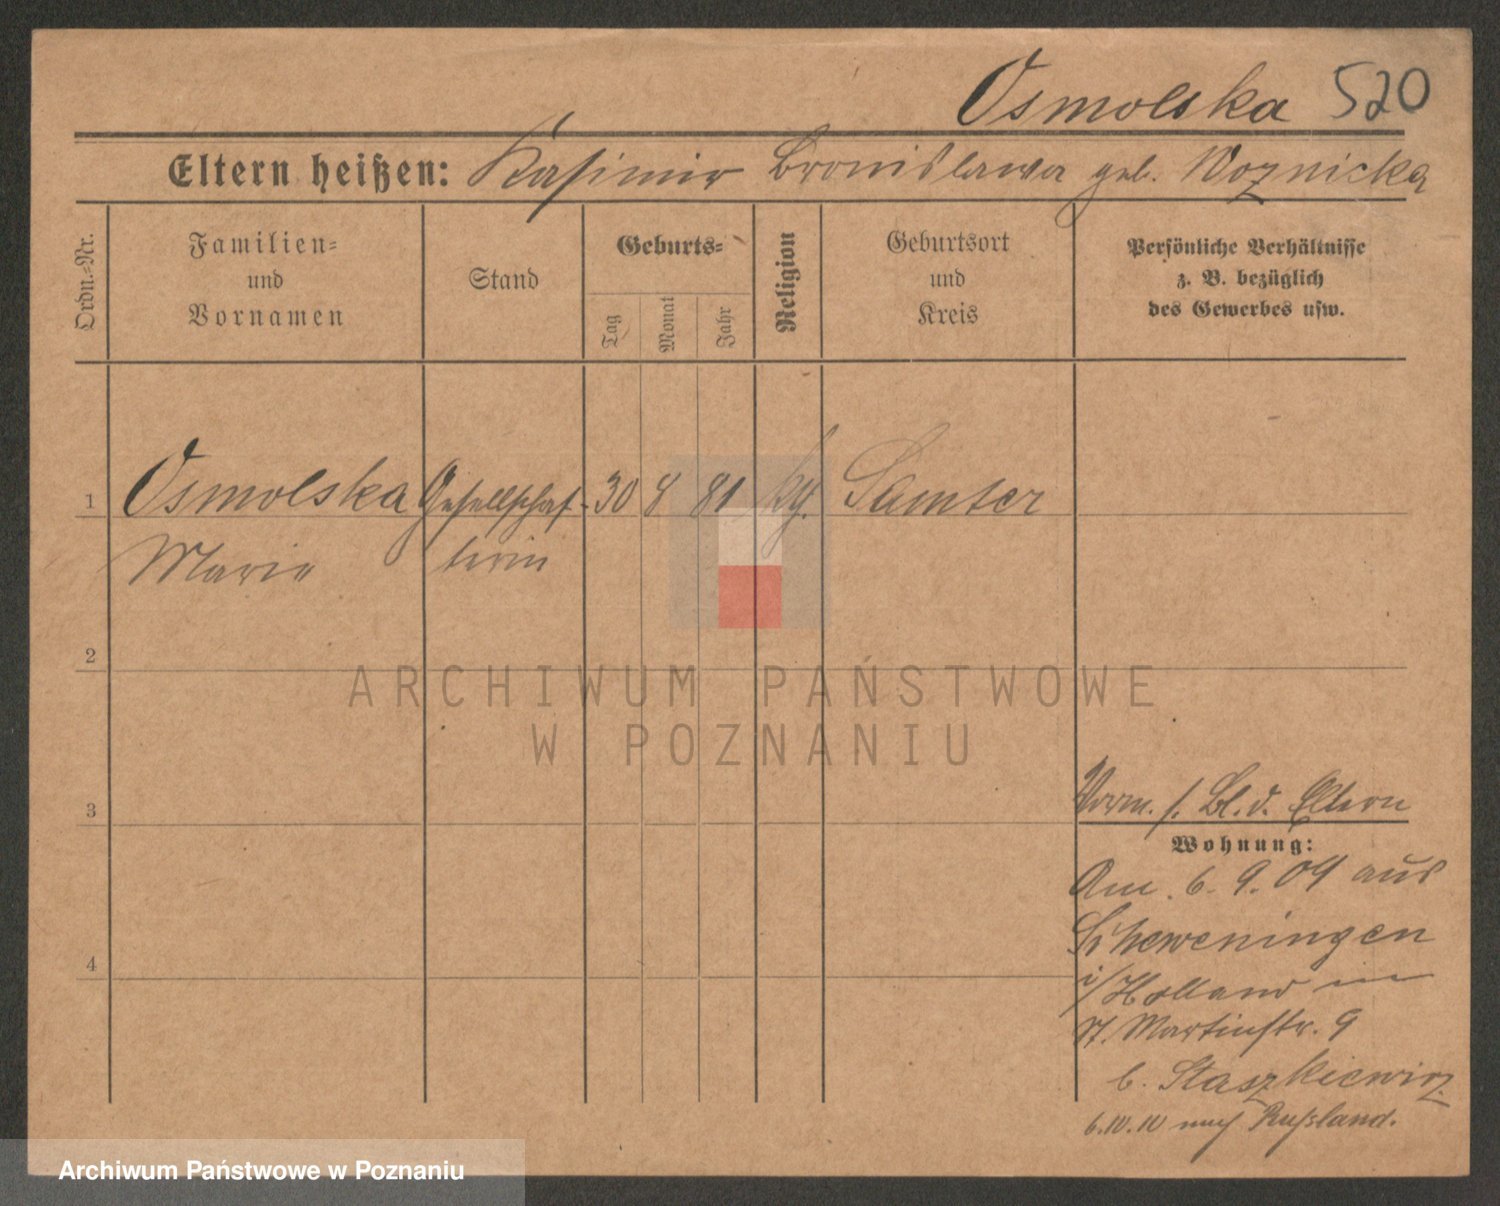 Osmolska 520
Eltern heißen: Kasimir Bronislawa geb. Woznicka
Ordn.-Nr.
Familien-
und
Vornamen
Stand
Geburts-
Tag
Monat
Jahr
Religion
Geburtsort
und
Kreis
Persönliche Verhältnisse
z. B. bezüglich
des Gewerbes usw.
1 Osmolska Gesellschaf- 30 8 81 kth. Samter
Marie terin
2
ARCHIWUM PAŃSTWOWE
W POZNANIU
3
Vorm. s. Bl. d. Eltern
Wohnung:
Am. 6. 9. 09 aus
Scheweningen
4
i/Holland in
St. Martinstr. 9
b. Staszkiewicz
6.IV.10 nach Russland.
Archiwum Państwowe w Poznaniu